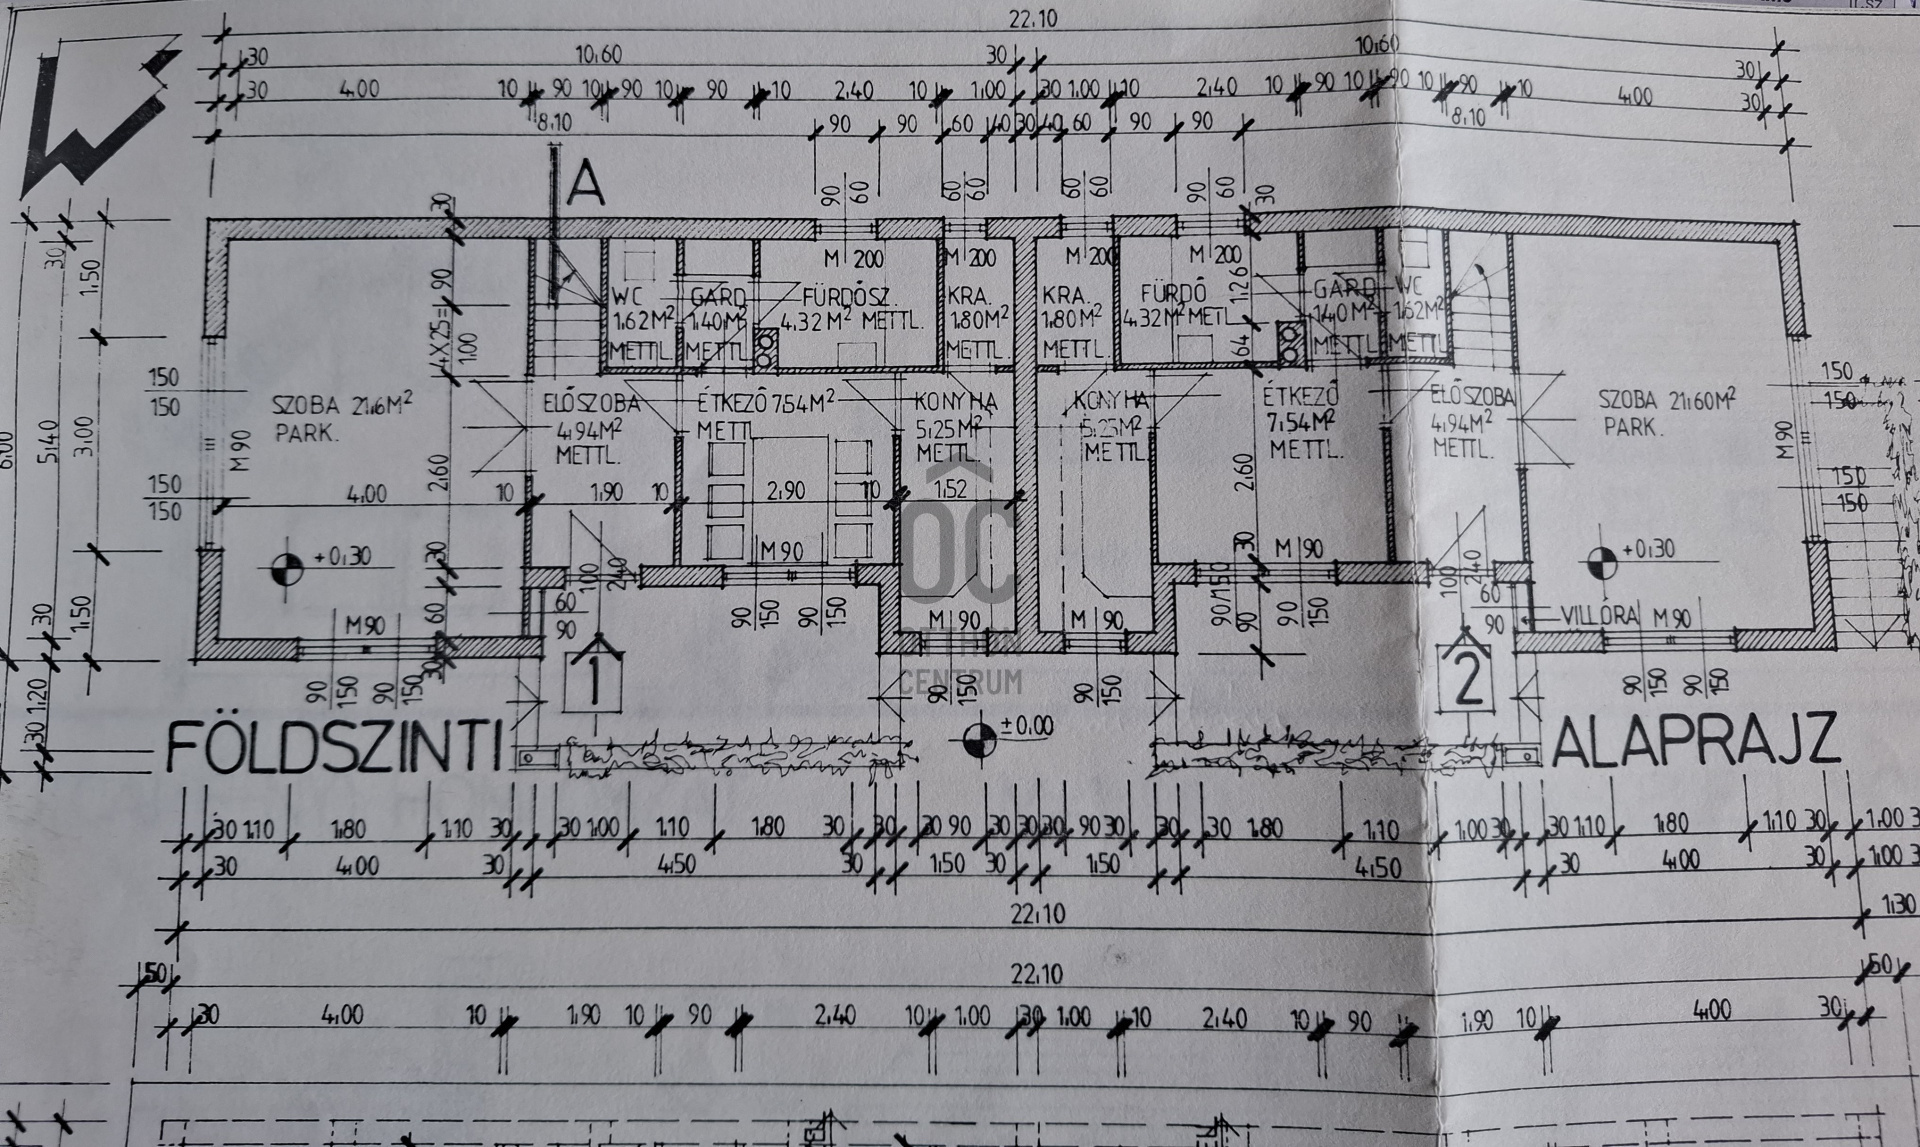 22.10
30 10.60 30 10.60 30
30 4.00 10 90 10 90 10 90 10 2.40 10 1.00 30 1.00 10 2.40 10 90 10 90 10 90 10 4.00 30
8.10 90 90 60 40 30 40 60 90 90 8.10
A
90 60 60 60 60 60 90 60 30
30
M 200 M 200 M 200 M 200
30 1.50 90 1.26
WC GARD FÜRDŐSZ. KRA. KRA. FÜRDŐ GARD WC
1.62M² 1.40M² 4.32M² METTL. 1.80M² 1.80M² 4.32M² METL. 1.40M² 1.62M²
METTL. METTL. METTL. METTL. METTL METTL
4X25= 1.00 64
150 150
150 150
SZOBA 21.6M² ELŐSZOBA ÉTKEZŐ 7.54M² KONYHA KONYHA ÉTKEZŐ ELŐSZOBA SZOBA 21.60M²
PARK. 4.94M² METTL 5.25M² 5.25M² 7.54M² 4.94M² PARK.
METTL. METTL. METTL METTL. METTL.
6.00 5.40 3.00 M 90 2.60 2.60 M90
150 4.00 10 1.90 10 2.90 10 1.52 150
150 150
ÓC
+0.30 M 90 M 90 +0.30
30 100 240 30 100 240
60 60
90 90
30 1.50 M 90 60 M 90 M 90 90 VILLÓRA M 90
90 150 90 150 90/150 90 150
OTTHON
CENTRUM
30 1.20 90 150 90 150 30 1 90 150 90 150 2 90 150 90 150
±0.00
FÖLDSZINTI ALAPRAJZ
30 1.10 1.80 1.10 30 30 1.00 1.10 1.80 30 30 30 90 30 30 30 90 30 30 30 1.80 1.10 1.00 30 30 1.10 1.80 1.10 30 1.00
30 4.00 30 4.50 30 1.50 30 1.50 4.50 30 4.00 30 1.00
22.10 1.30
50 22.10 50
30 4.00 10 1.90 10 90 2.40 10 1.00 30 1.00 10 2.40 10 90 1.90 10 4.00 30